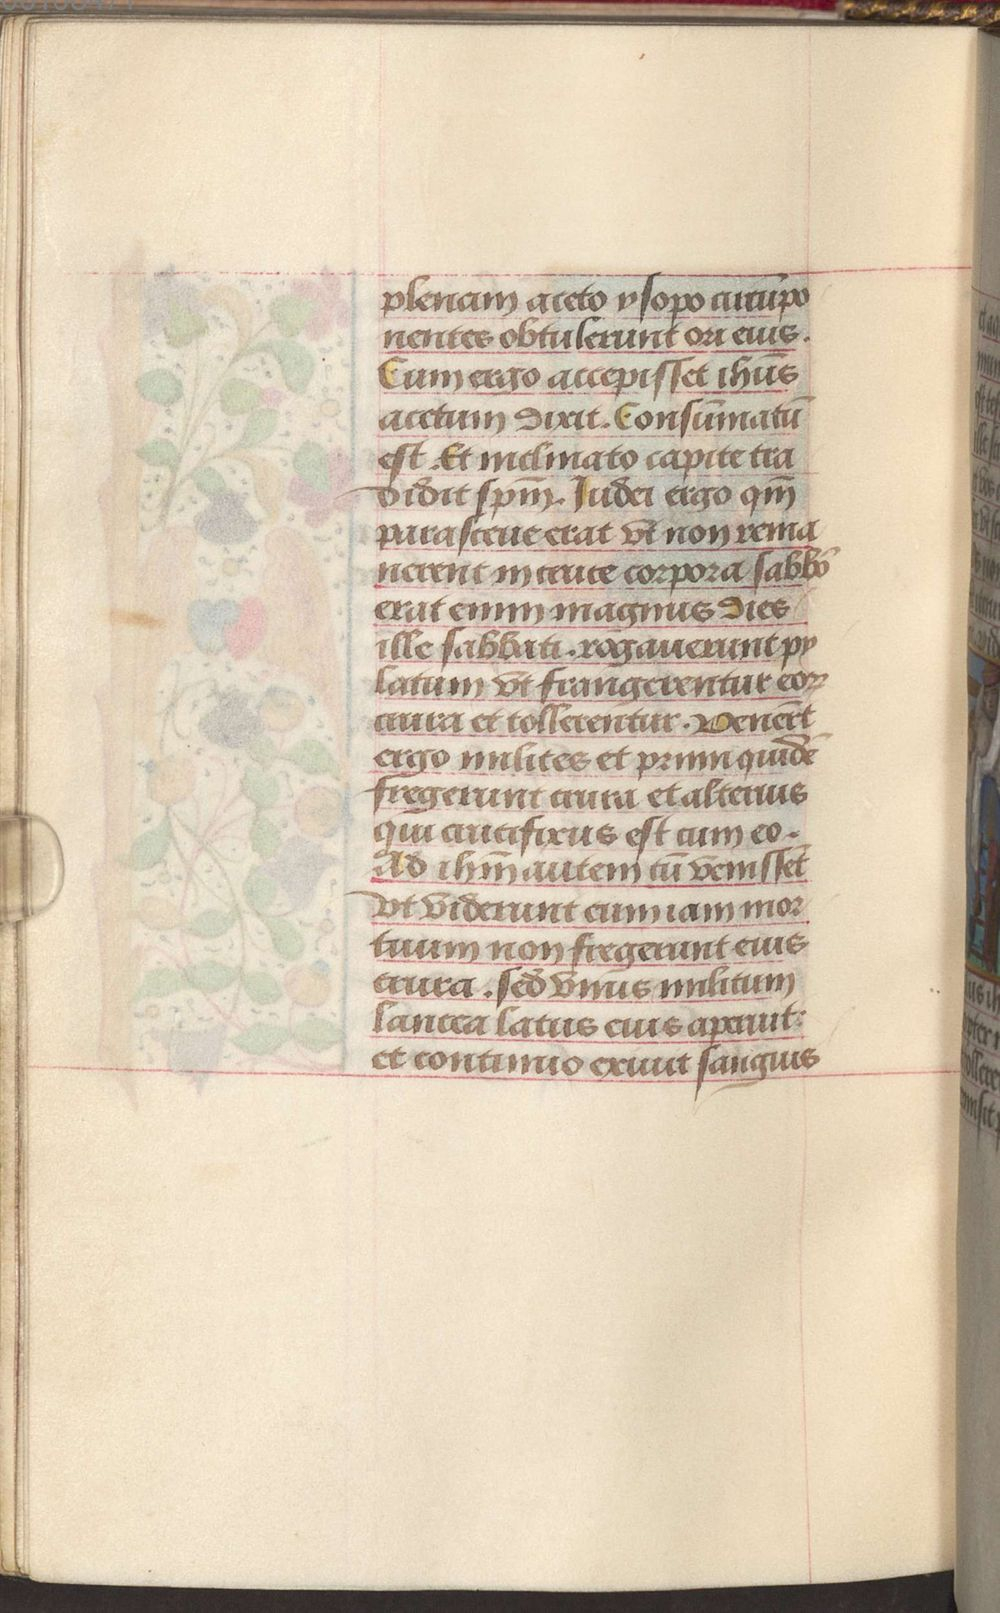 plenam aceto ysopo circu͂po
nentes obtulerunt ori eius.
Cum ergo accepisset ihūs
acetum dixit. Consūmatū
est. Et inclinato capite tra
didit sp̄m. Iudei ergo qm̄
parasceue erat vt non rema
nerent in cruce corpora sabb̄o
erat enim magnus dies
ille sabbati. rogauerunt py
latum vt frangerentur eoꝝ
crura et tollerentur. Venerūt
ergo milites et primi quidē
fregerunt crura et alterius
qui crucifixus est cum eo.
Ad ihm̄ autem cū venisset
vt viderunt eum iam mor
tuum non fregerunt eius
crura. sed vnus militum
lancea latus eius aperuit:
et continuo exiuit sanguis